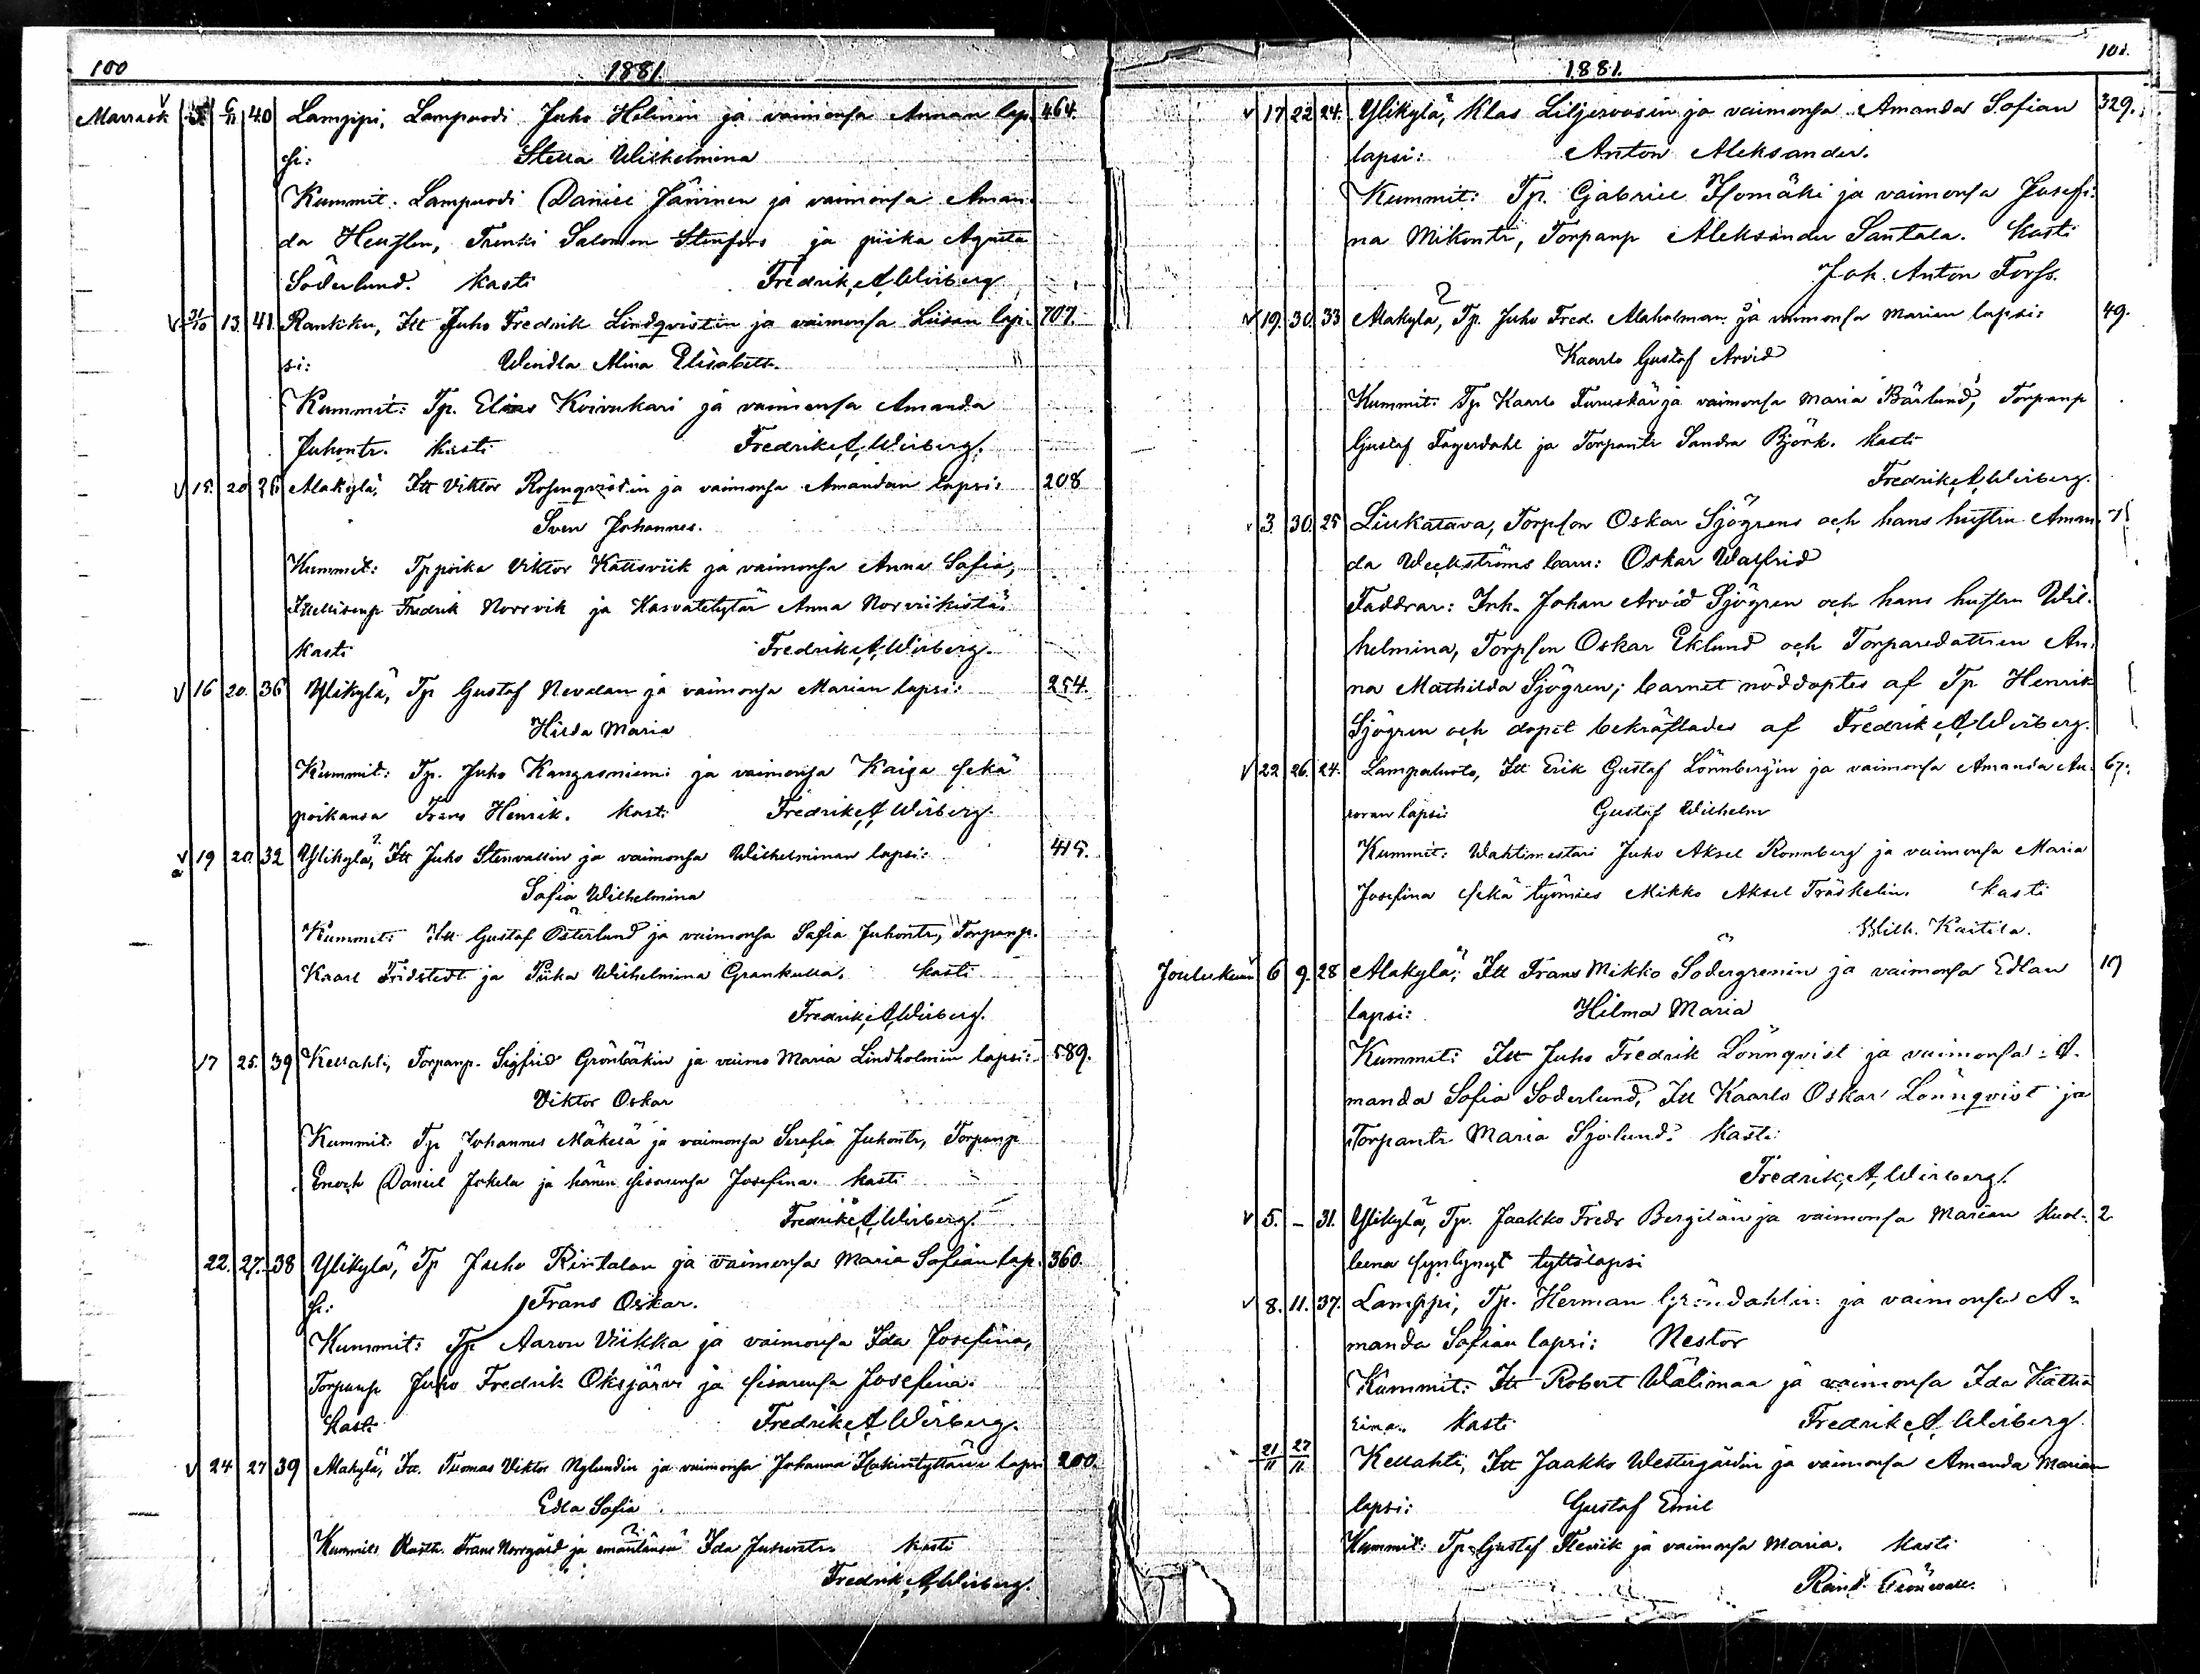 100
1881.
Marrask 5 6/11 40 Lamppi, Lampuodi Juho Helinin ja vaimonsa Annan lap- 464.
si: Stella Wilhelmina
Kummit: Lampuodi Daniel Järvinen ja vaimonsa Aman-
da Heurlen, Trenki Salomon Stenfors ja piika Agata
Söderlund. Kasti Fredrik A Wirberg
v 31/10 13. 41. Rankku, Itt Juho Fredrik Lindqvistin ja vaimonsa Liisan lap- 707.
si: Wendla Alina Elisabeth.
Kummit: Tp. Elias Koivukari ja vaimonsa Amanda
Juhontr. Kasti Fredrik A Wirberg.
v 15. 20 36 Alakylä, Itt Viktor Rosenqvistin ja vaimonsa Amandan lapsi: 208
Sven Johannes.
Kummit: Tp poika Viktor Kattsviik ja vaimonsa Anna Sofia,
Itsellisenp Fredrik Norrvik ja Kasvatetytär Anna Norviikistä.
Kasti Fredrik A Wirberg.
v 16 20. 36 Ylikylä, Tp Gustaf Nevalan ja vaimonsa Marian lapsi: 254.
Hilda Maria
Kummit: Tp. Juho Kangasniemi ja vaimonsa Kaisa sekä
poikansa Frans Henrik. Kasti Fredrik A Wirberg.
v 19 20. 32 Ylikylä, Itt Juho Stenvallin ja vaimonsa Wilhelminan lapsi: 415.
Sofia Wilhelmina
Kummit: Itt Gustaf Österlund ja vaimonsa Sofia Juhontr, Torpanp.
Kaarl Fridstedt ja Piika Wilhelmina Grankulla. Kasti
Fredrik A Wirberg.
17 25. 39 Kellahti, Torpanp. Sigfrid Grönbäkin ja vaimo Maria Lindholmin lapsi: 589.
Viktor Oskar
Kummit: Tp Johannes Mäkelä ja vaimonsa Serafia Juhontr, Torpanp
Enoch Daniel Jokela ja hänen sisarensa Josefina. Kasti
Fredrik A Wirberg.
22. 27. 38 Ylikylä, Tp Juho Rintalan ja vaimonsa Maria Sofian lap- 360.
si: Frans Oskar.
Kummit: Tp Aaron Viikka ja vaimonsa Ida Josefina,
Torpanp Juho Fredrik Oksjärvi ja sisarensa Josefina.
Kasti Fredrik A Wirberg.
v 24 27 39 Alakylä, Itt. Tuomas Viktor Nylundin ja vaimonsa Johanna Iisakintyttären lapsi 200.
Edla Sofia
Kummit: Frans Norrgård ja emäntänsä Ida Juhontr. Kasti
Fredrik A Wirberg.
101.
1881.
v 17 22 24. Ylikylä, Klas Liljeroosin ja vaimonsa Amanda Sofian 329.
lapsi: Anton Aleksander.
Kummit: Tp. Gabriel Isomäki ja vaimonsa Josefi-
na Mikontr, Torpanp Aleksander Santala. Kasti
Joh. Anton Forss.
v 19. 30. 33 Alakylä, Tp. Juho Fred. Alaholman ja vaimonsa Marian lapsi: 49.
Kaarlo Gustaf Arvid
Kummit: Tp Kaarlo Furuskär ja vaimonsa Maria Bärlund, Torpanp
Gustaf Fagerdahl ja Torpantr Sandra Björk. Kasti
Fredrik A Wirberg.
3. 30. 25 Liukatava, Torpson Oskar Sjögrens och hans hustru Aman-
da Weckströms barn: Oskar Walfrid
Faddrar: Inh. Johan Arvid Sjögren och hans hustru Wil-
helmina, Torpson Oskar Eklund och Torparedottren An-
na Mathilda Sjögren; barnet nöddöptes af Tp Henrik
Sjögren och dopet bekräftades af Fredrik A Wirberg.
v 22 26. 24. Lampaluoto, Itt Erik Gustaf Lönnbergin ja vaimonsa Amanda Au- 67.
roran lapsi: Gustaf Wilhelm
Kummit: Wahtimestari Juho Aksel Rönnberg ja vaimonsa Maria
Josefina sekä työmies Mikko Aksel Träskelin. Kasti
Wilh. Kaitila.
Joulukuu 6 9. 28 Alakylä, Itt Frans Mikko Södergrenin ja vaimonsa Edlan 19
lapsi: Hilma Maria
Kummit: Itt Juho Fredrik Lönnqvist ja vaimonsa A-
manda Sofia Söderlund, Itt Kaarlo Oskar Lönnqvist ja
Torpantr Maria Sjölund. Kasti
Fredrik A Wirberg.
v 5. – 31. Ylikylä, Tp. Jaakko Fredr Bergilän ja vaimonsa Marian Kuol- 2
leena syntynyt tyttölapsi
v 8. 11. 37. Lamppi, Tp. Herman Gröndahlin ja vaimonsa A-
manda Sofian lapsi: Nestor
Kummit: Itt Robert Wälimaa ja vaimonsa Ida Katha-
riina. Kasti Fredrik A Wirberg
21/11 27/11 Kellahti, Itt Jaakko Westergårdin ja vaimonsa Amanda Marian
lapsi: Gustaf Emil
Kummit: Tp Gustaf Flevik ja vaimonsa Maria. Kasti
Grönvall.